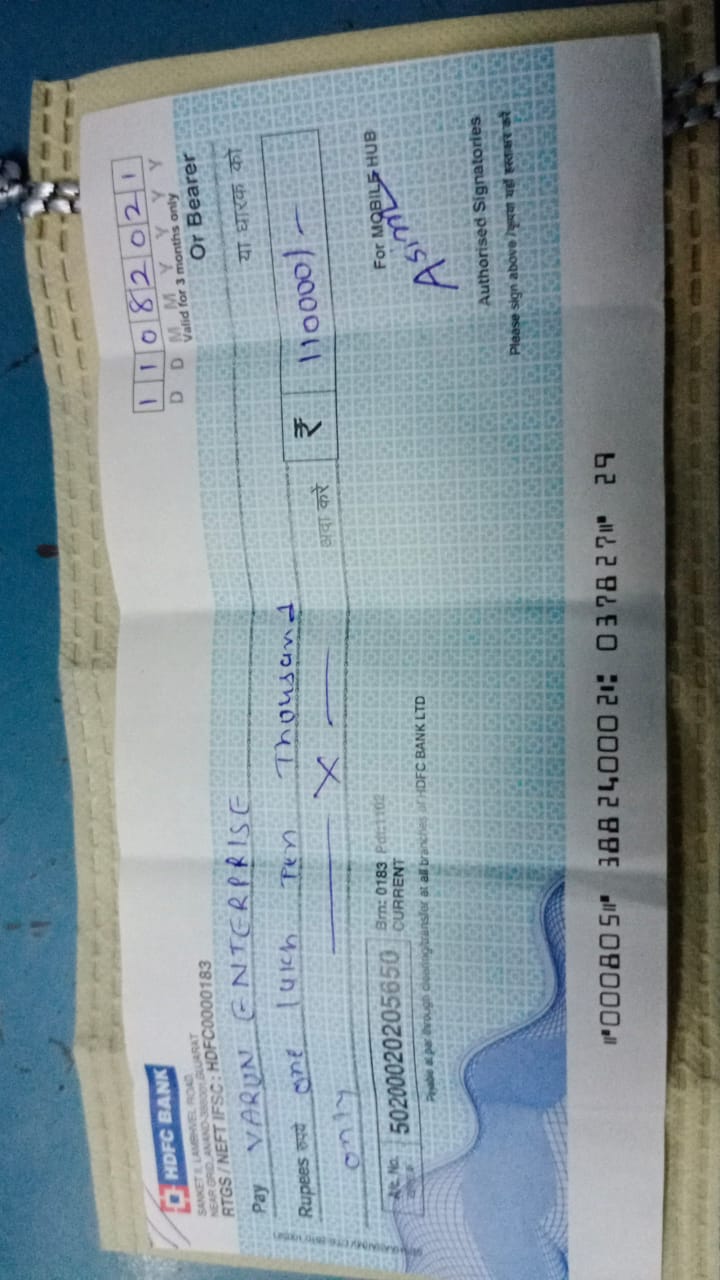 HDFC BANK
SANKET II, LAMBHVEL ROAD,
NEAR GRID, ANAND-388001, GUJARAT
RTGS / NEFT IFSC : HDFC0000183
11082021
D D M M Y Y Y Y
Valid for 3 months only
Pay VARUN ENTERPRISE Or Bearer
या धारक को
Rupees रुपये one lakh Ten Thousand
only — X — अदा करे ₹ 110000/-
A/c. No. 50200020205650 Brn: 0183
CURRENT
For MOBILE HUB
Asml
Payable at par through clearing/transfer at all branches of HDFC BANK LTD
Authorised Signatories
Please sign above / कृपया यहाँ हस्ताक्षर करें
⑈000805⑈ 388240002⑆ 037827⑈ 29